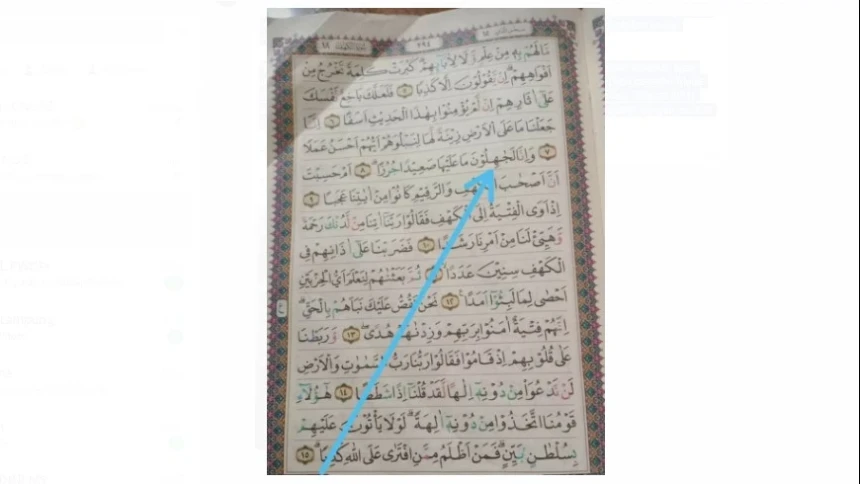 ٢٩٤
مَالَهُمْ بِهٖ مِنْ عِلْمٍ وَّلَا لِاٰبَاۤىِٕهِمْۗ كَبُرَتْ كَلِمَةً تَخْرُجُ مِنْ
اَفْوَاهِهِمْۗ اِنْ يَّقُوْلُوْنَ اِلَّا كَذِبًا ٥ فَلَعَلَّكَ بَاخِعٌ نَّفْسَكَ
عَلٰٓى اٰثَارِهِمْ اِنْ لَّمْ يُؤْمِنُوْا بِهٰذَا الْحَدِيْثِ اَسَفًا ٦ اِنَّا
جَعَلْنَا مَا عَلَى الْاَرْضِ زِيْنَةً لَّهَا لِنَبْلُوَهُمْ اَيُّهُمْ اَحْسَنُ عَمَلًا
٧ وَاِنَّا لَجٰهِلُوْنَ مَا عَلَيْهَا صَعِيْدًا جُرُزًاۗ ٨ اَمْ حَسِبْتَ
اَنَّ اَصْحٰبَ الْكَهْفِ وَالرَّقِيْمِ كَانُوْا مِنْ اٰيٰتِنَا عَجَبًا ٩
اِذْ اَوَى الْفِتْيَةُ اِلَى الْكَهْفِ فَقَالُوْا رَبَّنَآ اٰتِنَا مِنْ لَّدُنْكَ رَحْمَةً
وَّهَيِّئْ لَنَا مِنْ اَمْرِنَا رَشَدًا ١٠ فَضَرَبْنَا عَلٰٓى اٰذَانِهِمْ فِى
الْكَهْفِ سِنِيْنَ عَدَدًاۙ ١١ ثُمَّ بَعَثْنٰهُمْ لِنَعْلَمَ اَيُّ الْحِزْبَيْنِ
اَحْصٰى لِمَا لَبِثُوْٓا اَمَدًا ١٢ نَحْنُ نَقُصُّ عَلَيْكَ نَبَاَهُمْ بِالْحَقِّۗ
اِنَّهُمْ فِتْيَةٌ اٰمَنُوْا بِرَبِّهِمْ وَزِدْنٰهُمْ هُدًىۖ ١٣ وَّرَبَطْنَا
عَلٰى قُلُوْبِهِمْ اِذْ قَامُوْا فَقَالُوْا رَبُّنَا رَبُّ السَّمٰوٰتِ وَالْاَرْضِ
لَنْ نَّدْعُوَا۟ مِنْ دُوْنِهٖٓ اِلٰهًا لَّقَدْ قُلْنَآ اِذًا شَطَطًا ١٤ هٰٓؤُلَاۤءِ
قَوْمُنَا اتَّخَذُوْا مِنْ دُوْنِهٖٓ اٰلِهَةًۗ لَوْلَا يَأْتُوْنَ عَلَيْهِمْ
بِسُلْطٰنٍۢ بَيِّنٍۗ فَمَنْ اَظْلَمُ مِمَّنِ افْتَرٰى عَلَى اللّٰهِ كَذِبًاۗ ١٥